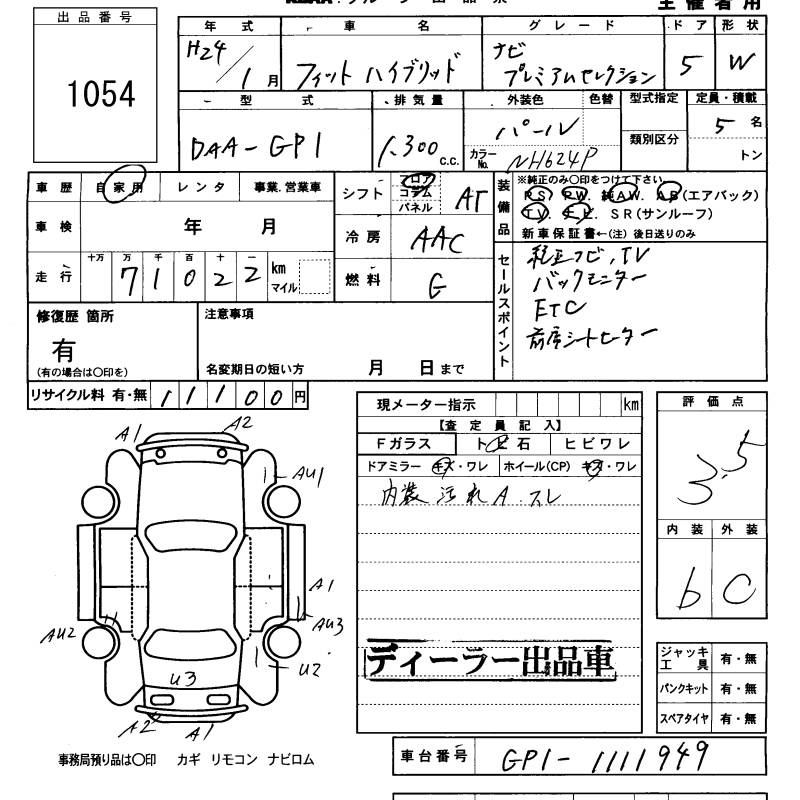 主催者用
出品番号
1054
年式 車名 グレード ドア 形状
H24/1月 フィットハイブリッド ナビプレミアムセレクション 5 W
型式 排気量 外装色 色替 型式指定 定員・積載
DAA-GP1 1.300c.c. パール 類別区分 5名
カラーNo. NH624P トン
車歴 自家用 レンタ 事業.営業車
シフト フロア コラム パネル AT
装備品 ※純正のみ○印をつけて下さい
PS. PW. 純AW. AB(エアバック)
TV. ナビ. SR(サンルーフ)
新車保証書←(注)後日送りのみ
車検 年 月
冷房 AAC
走行 十万 万 千 百 十 一
71022 km マイル
燃料 G
セールスポイント
純正ナビ,TV
バックモニター
ETC
前席シートヒーター
修復歴 箇所
有
(有の場合は○印を)
注意事項
名変期日の短い方 月 日まで
リサイクル料 有・無 11100円
現メーター指示 km
【査定員記入】
Fガラス トビ石 ヒビワレ
ドアミラー キズ・ワレ ホイール(CP) キズ・ワレ
内装 汚れA.スレ
ディーラー出品車
評価点
3.5
内装 外装
b C
A1 A2
AU1
A1
AU3
AU2
U2
U3
A2 A1
ジャッキ工具 有・無
パンクキット 有・無
スペアタイヤ 有・無
事務局預り品は○印 カギ リモコン ナビロム
車台番号 GP1-1111949